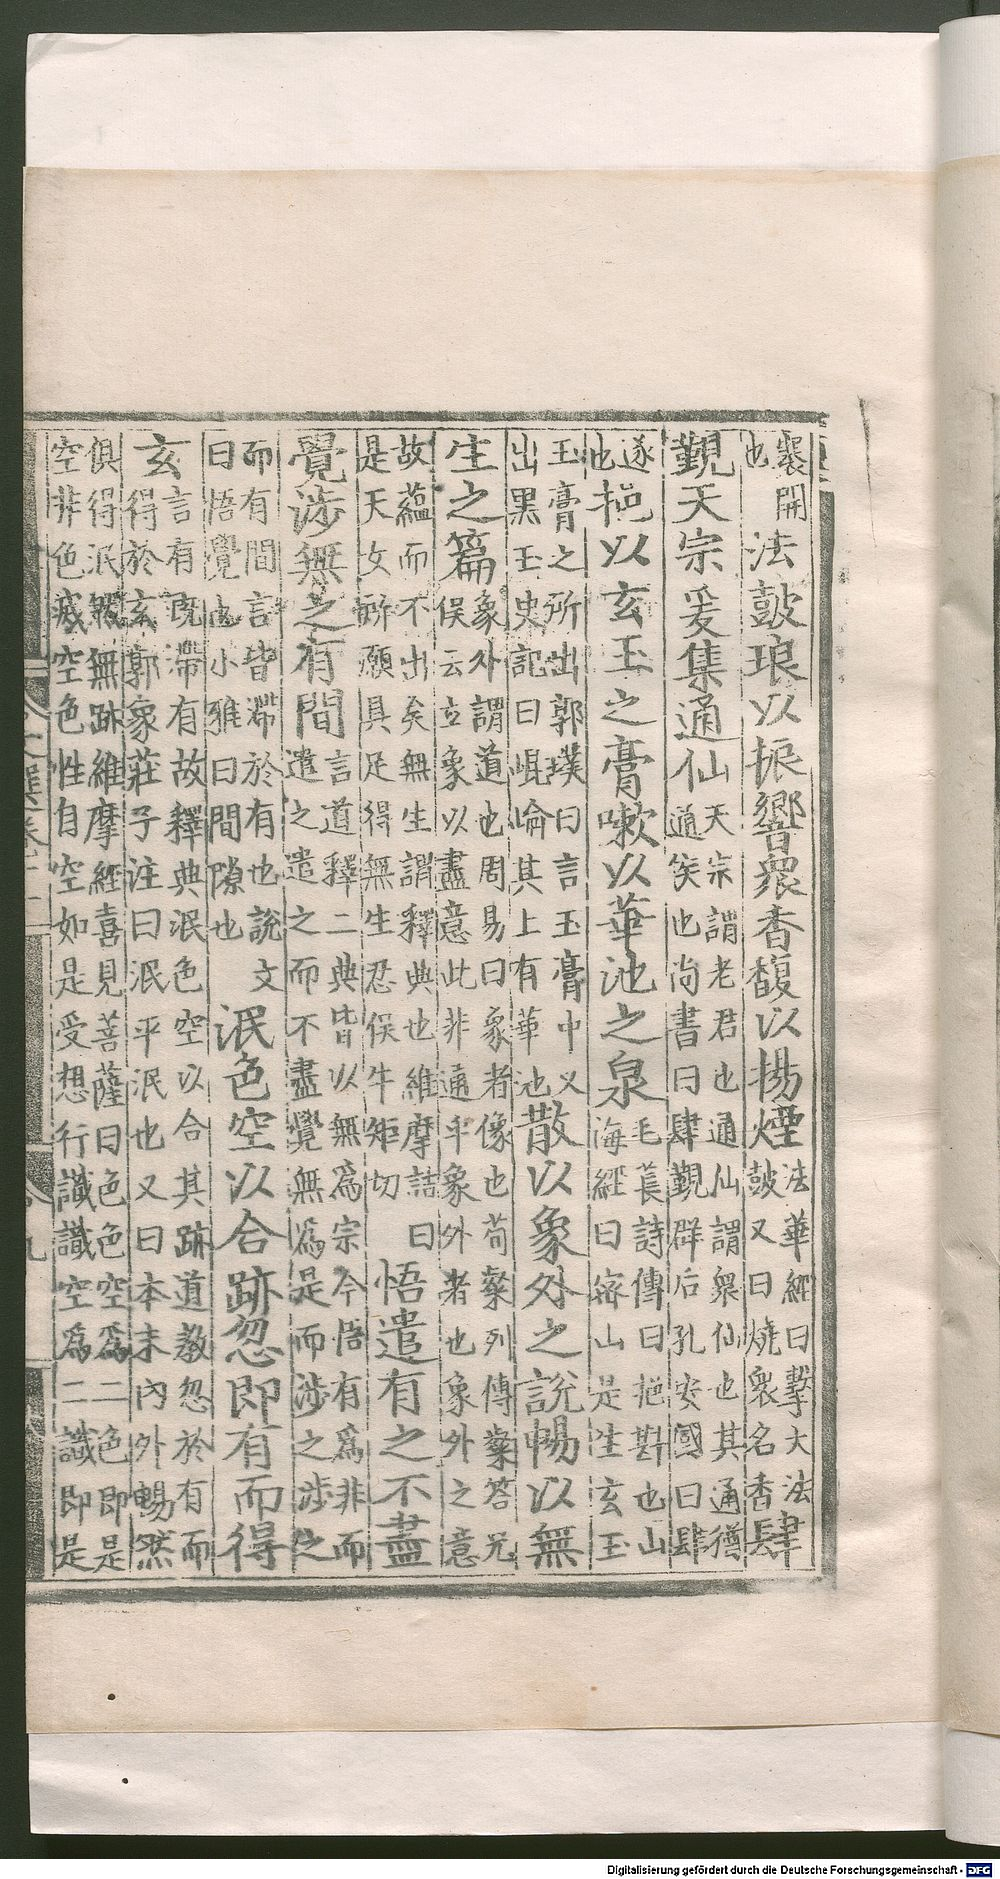 褰開也法鼓琅以振響眾香馥以揚煙法華經曰擊大法鼓又曰燒眾名香肆
覲天宗爰集通仙天宗謂老君也通仙謂眾仙也其通猶通侯也尚書曰肆覲群后孔安國曰肆
遂也挹以玄玉之膏嗽以華池之泉毛萇詩傳曰挹㪺也山海經曰密山是生玄玉
玉膏之所出郭璞曰言玉膏中又出黑玉史記曰崐崘其上有華池散以象外之說暢以無
生之篇象外謂道也周易曰象者像也荀粲列傳粲答兄俁云立象以盡意此非通乎象外者也象外之意
故蘊而不出矣無生謂釋典也維摩詰曰是天女所願具足得無生忍俁牛矩切悟遣有之不盡
覺涉無之有間言道釋二典皆以無爲宗今悟有爲非而遣之遣之而不盡覺無爲是而涉之涉之
而有間言皆滯於有也說文曰悟覺也小雅曰間隙也泯色空以合跡忽即有而得
玄言有既滯有故釋典泯色空以合其跡道教忽於有而得於玄郭象莊子注曰泯平泯也又曰本末內外暢然
俱得泯然無跡維摩經喜見菩薩曰色色空爲二色即是空非色滅空色性自空如是受想行識識空爲二識即是
Digitalisierung gefördert durch die Deutsche Forschungsgemeinschaft - DFG